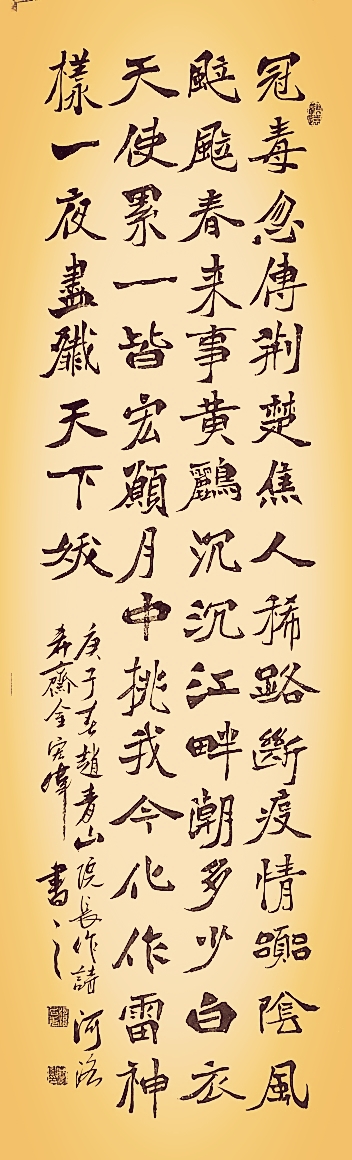 冠毒忽傳荆楚焦人稀路斷疫情囂陰風
颭颭春来事黄鸝沉沉江畔潮多少白衣
天使累一皆宏願月中挑我今化作雷神
樣一夜盡殲天下娥
庚子春趙青山院長作詩 河洛
弄齋金宏偉書之